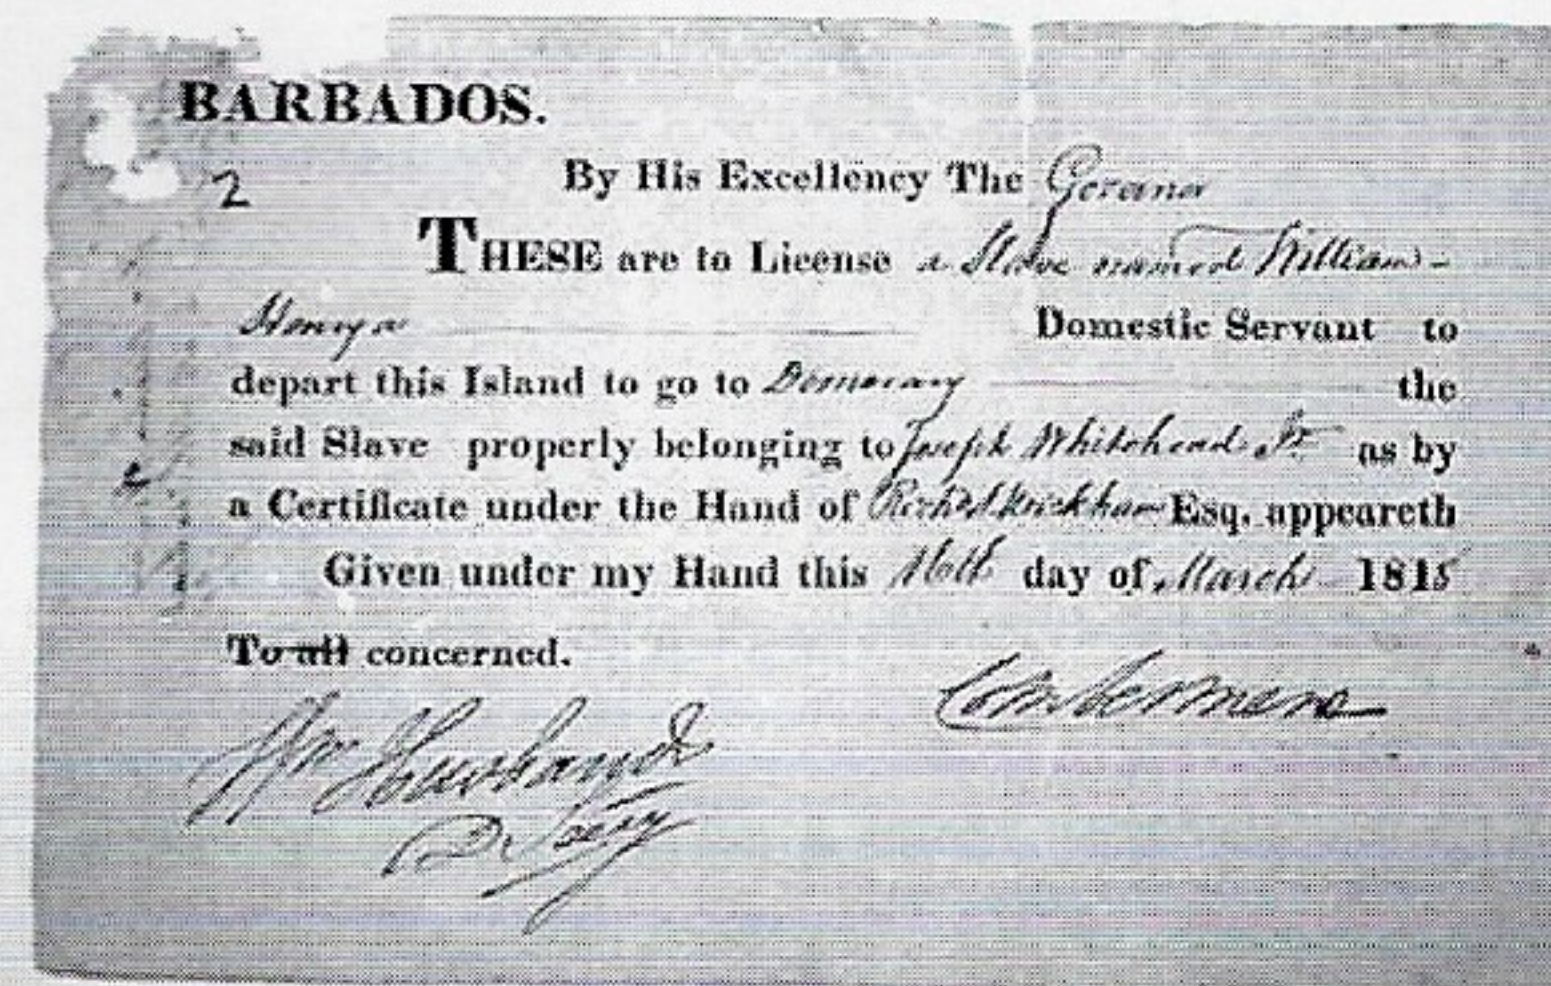 BARBADOS.
2
By His Excellency The Governor
THESE are to License a Slave named William-
Henry a Domestic Servant to
depart this Island to go to Demerary the
said Slave properly belonging to Joseph Whitehead Jr. as by
a Certificate under the Hand of Esq. appeareth
Given under my Hand this 16th day of March 1818
To all concerned.
Combermere
Wm